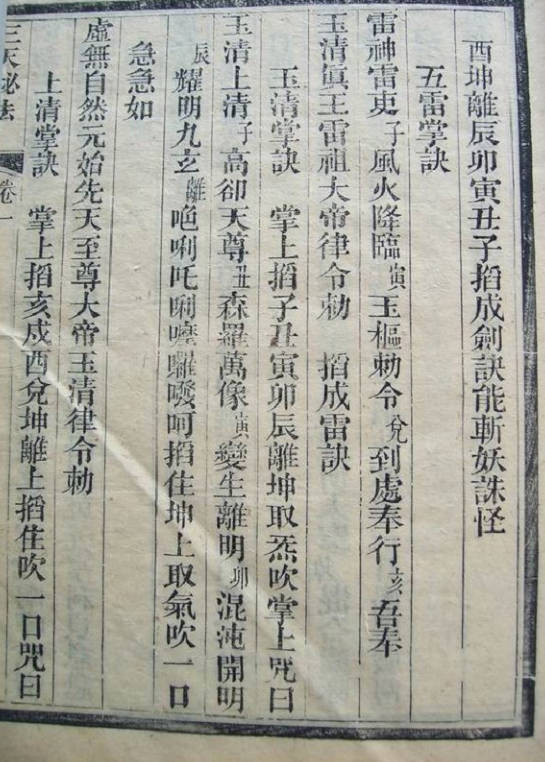 酉坤離辰卯寅丑子搯成劍訣能斬妖誅怪
五雷掌訣
雷神雷吏子風火降臨寅玉樞勅令兌到處奉行亥吾奉
玉清眞王雷祖大帝律令勅 搯成雷訣
玉清掌訣 掌上搯子丑寅卯辰離坤取炁吹掌上咒曰
玉清上清子高卻天尊丑森羅萬像寅變生離明卯混沌開明
辰耀明九玄離唵唎吒唎嚤囉發呵搯住坤上取氣吹一口
急急如
虛無自然元始先天至尊大帝玉清律令勅
上清掌訣 掌上搯亥戍酉兌坤離上搯住吹一口咒曰
三天秘法 卷一